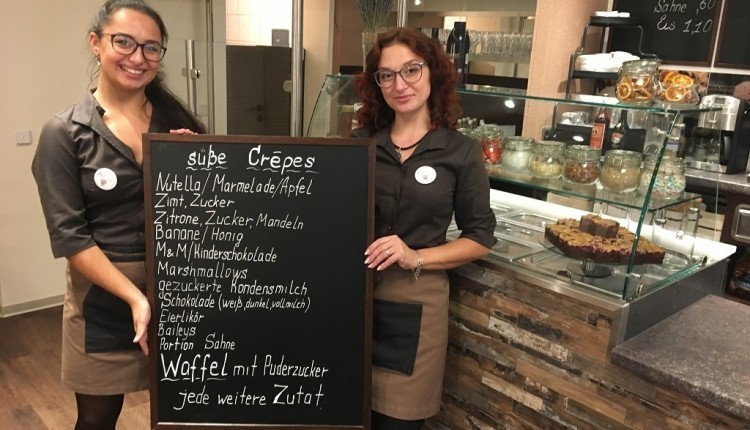 Sahne ,60
Eis 1,10
süße Crêpes
Nutella/Marmelade/Apfel
Zimt, Zucker
Zitrone, Zucker, Mandeln
Banane/Honig
M&M/Kinderschokolade
Marshmallows
gezuckerte Kondensmilch
Schokolade (weiß, dunkel, vollmilch)
Eierlikör
Baileys
Portion Sahne
Waffel mit Puderzucker
jede weitere Zutat